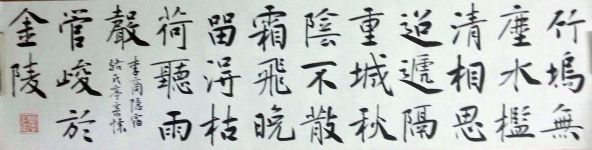 竹塢無
塵水檻
清相思
迢遞隔
重城秋
陰不散
霜飛晚
留得枯
荷聽雨
聲
李商隱宿
駱氏亭寄懷
管峻於
金陵